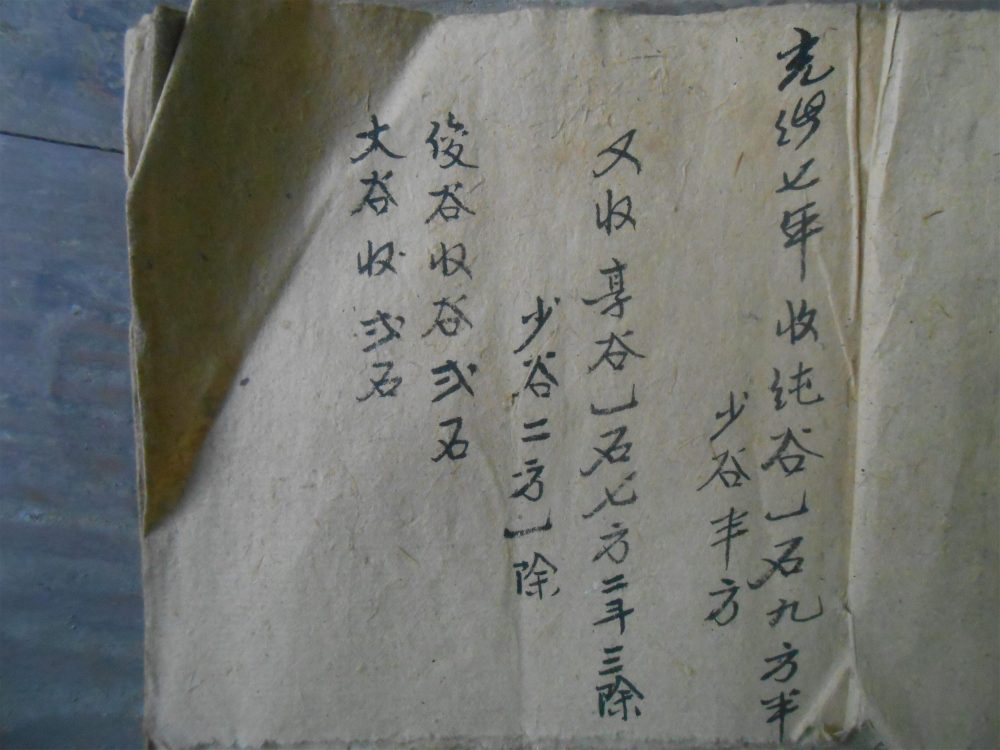 光绪七年收纯谷一石九方半
少谷半方
又收享谷一石七方二斗三除
少谷二方一除
俊谷收谷弍石
大谷收弍石